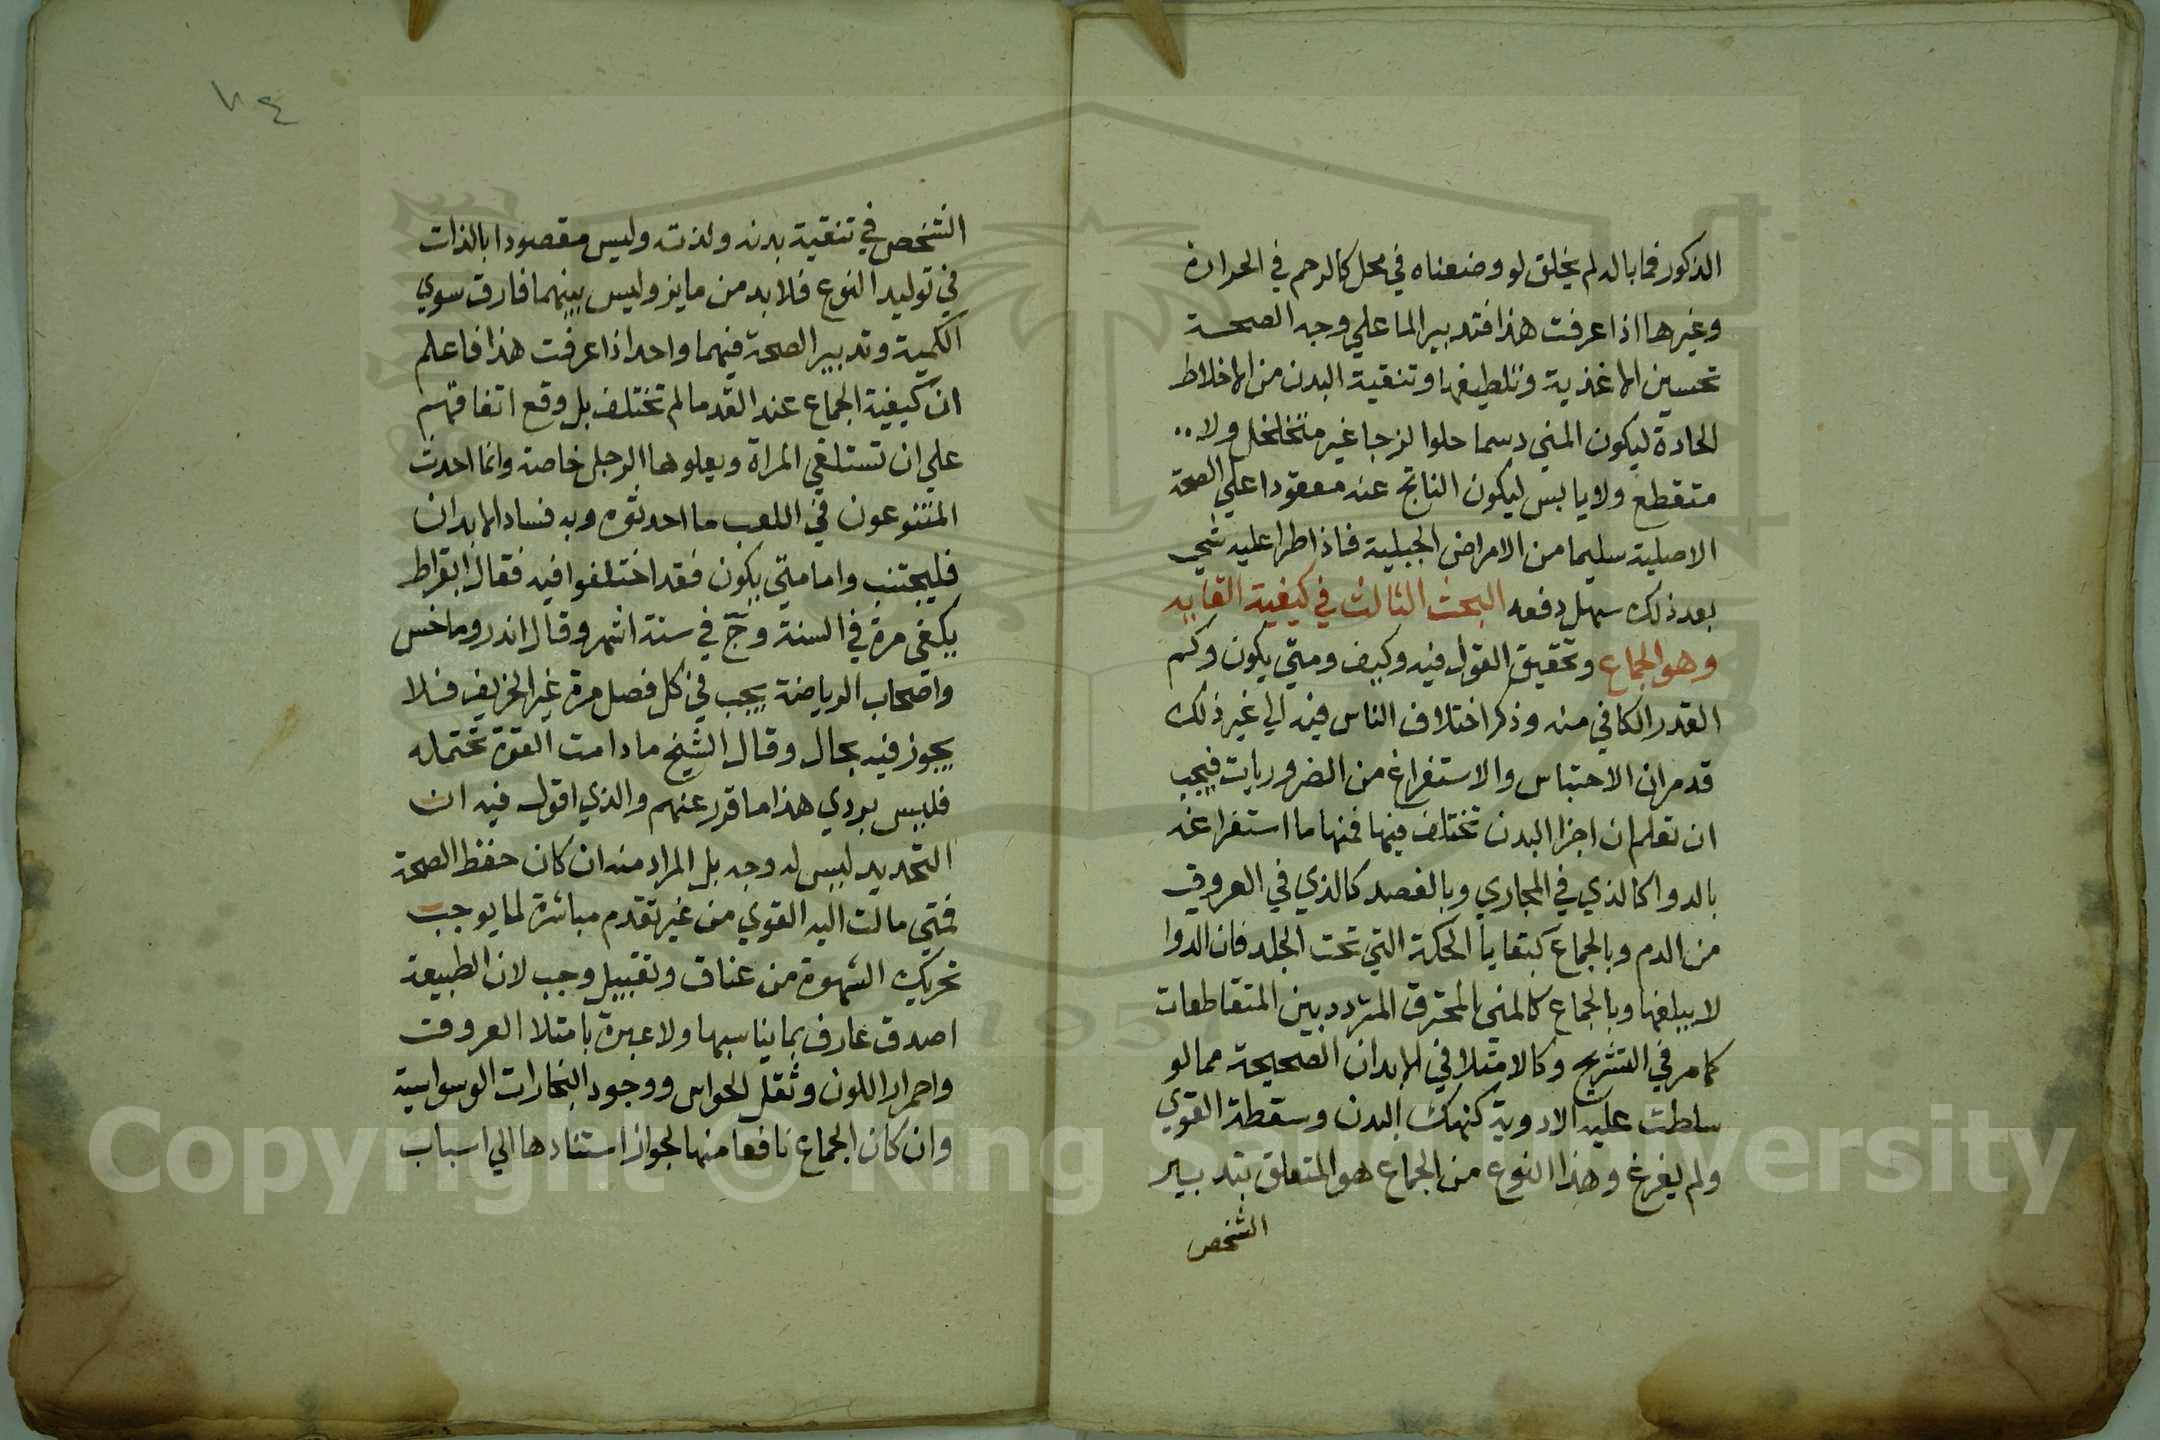 الذكور فما باله لم يخلق لو وضعناه في محل كالرحم في الحرارة
وغيرها اذا عرفت هذا فتدبير الما علي وجه الصحة
تحسين الاغذية وتلطيفها وتنقية البدن من الاخلاط
الحادة ليكون المني دسما حلوا لزجا غير متخلخل ولا
متقطع ولا يابس ليكون الناتج عنه معقودا علي الصحة
الاصلية سليما من الامراض الجبلية فاذا طرا عليه شي
بعد ذلك سهل دفعه البحث الثالث في كيفية القايه
وهو الجماع وتحقيق القول فيه وكيف ومتي يكون وكم
القدر الكافي منه وذكر اختلاف الناس فيه الي غير ذلك
قد مر ان الاحتباس والاستفراغ من الضروريات فيجب
ان تعلم ان اجزا البدن تختلف فيها فمنها ما استفراغه
بالدوا كالذي في المجاري وبالفصد كالذي في العروق
من الدم وبالجماع كبقايا الحكة التي تحت الجلد فان الدوا
لا يبلغها وبالجماع كالمني المحترق المتردد بين المتقاطعات
كما مر في التشريح وكالامتلا في الابدان الصحيحة مما لو
سلطت عليه الادوية كنهك البدن وسقطة القوي
ولم يفرغ وهذا النوع من الجماع هو المتعلق بتدبير
الشخص
٧٤
الشخص في تنقية بدنه ولذته وليس مقصودا بالذات
في توليد النوع فلا بد من مايز وليس بينهما فارق سوي
الكمية وتدبير الصحة فيهما واحد اذا عرفت هذا فاعلم
ان كيفية الجماع عند القدما لم تختلف بل وقع اتفاقهم
علي ان تستلقي المراة ويعلوها الرجل خاصة وانما احدث
المتنوعون في اللعب ما احدثوه وبه فساد الابدان
فليجتنب واما متي يكون فقد اختلفوا فيه فقال ابقراط
يكفي مرة في السنة وج في ستة اشهر وقال اندروماخس
واصحاب الرياضة يجب في كل فصل مرة غير الخريف فلا
يجوز فيه بحال وقال الشيخ ما دامت القوة تحتمله
فليس بردي هذا ما قرر عنهم والذي اقول فيه ان
التحديد ليس له وجه بل المراد منه ان كان حفظ الصحة
فمتي مالت اليه القوي من غير تقدم مباشرة لما يوجب
تحريك الشهوة من عناق وتقبيل وجب لان الطبيعة
اصدق عارف بما يناسبها ولا عبرة بامتلا العروق
واحمرار اللون وثقل الحواس ووجود البخارات الوسواسية
وان كان الجماع نافعا منها لجواز استنادها الي اسباب
1957
Copyright © King Saud University